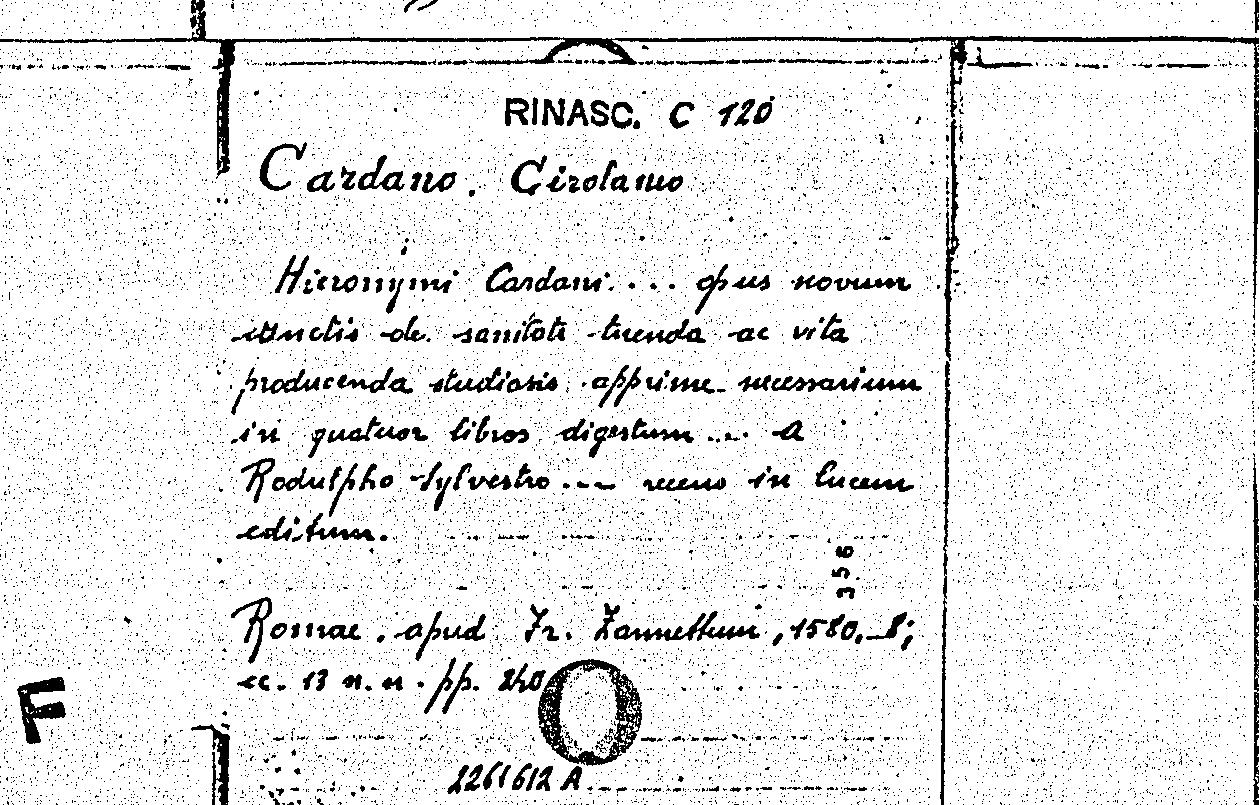 RINASC. C 120
Cardano, Girolamo
Hieronymi Cardani... opus novum
cunctis de sanitate tuenda ac vita
producenda studiosis apprime necessarium
in quatuor libros digestum... A
Rodulpho Sylvestro... recens in lucem
editum.
356
Romae, apud Fr. Zannettum, 1580. 8°;
cc. 13 n. n. pp. 240
2261612 A
F